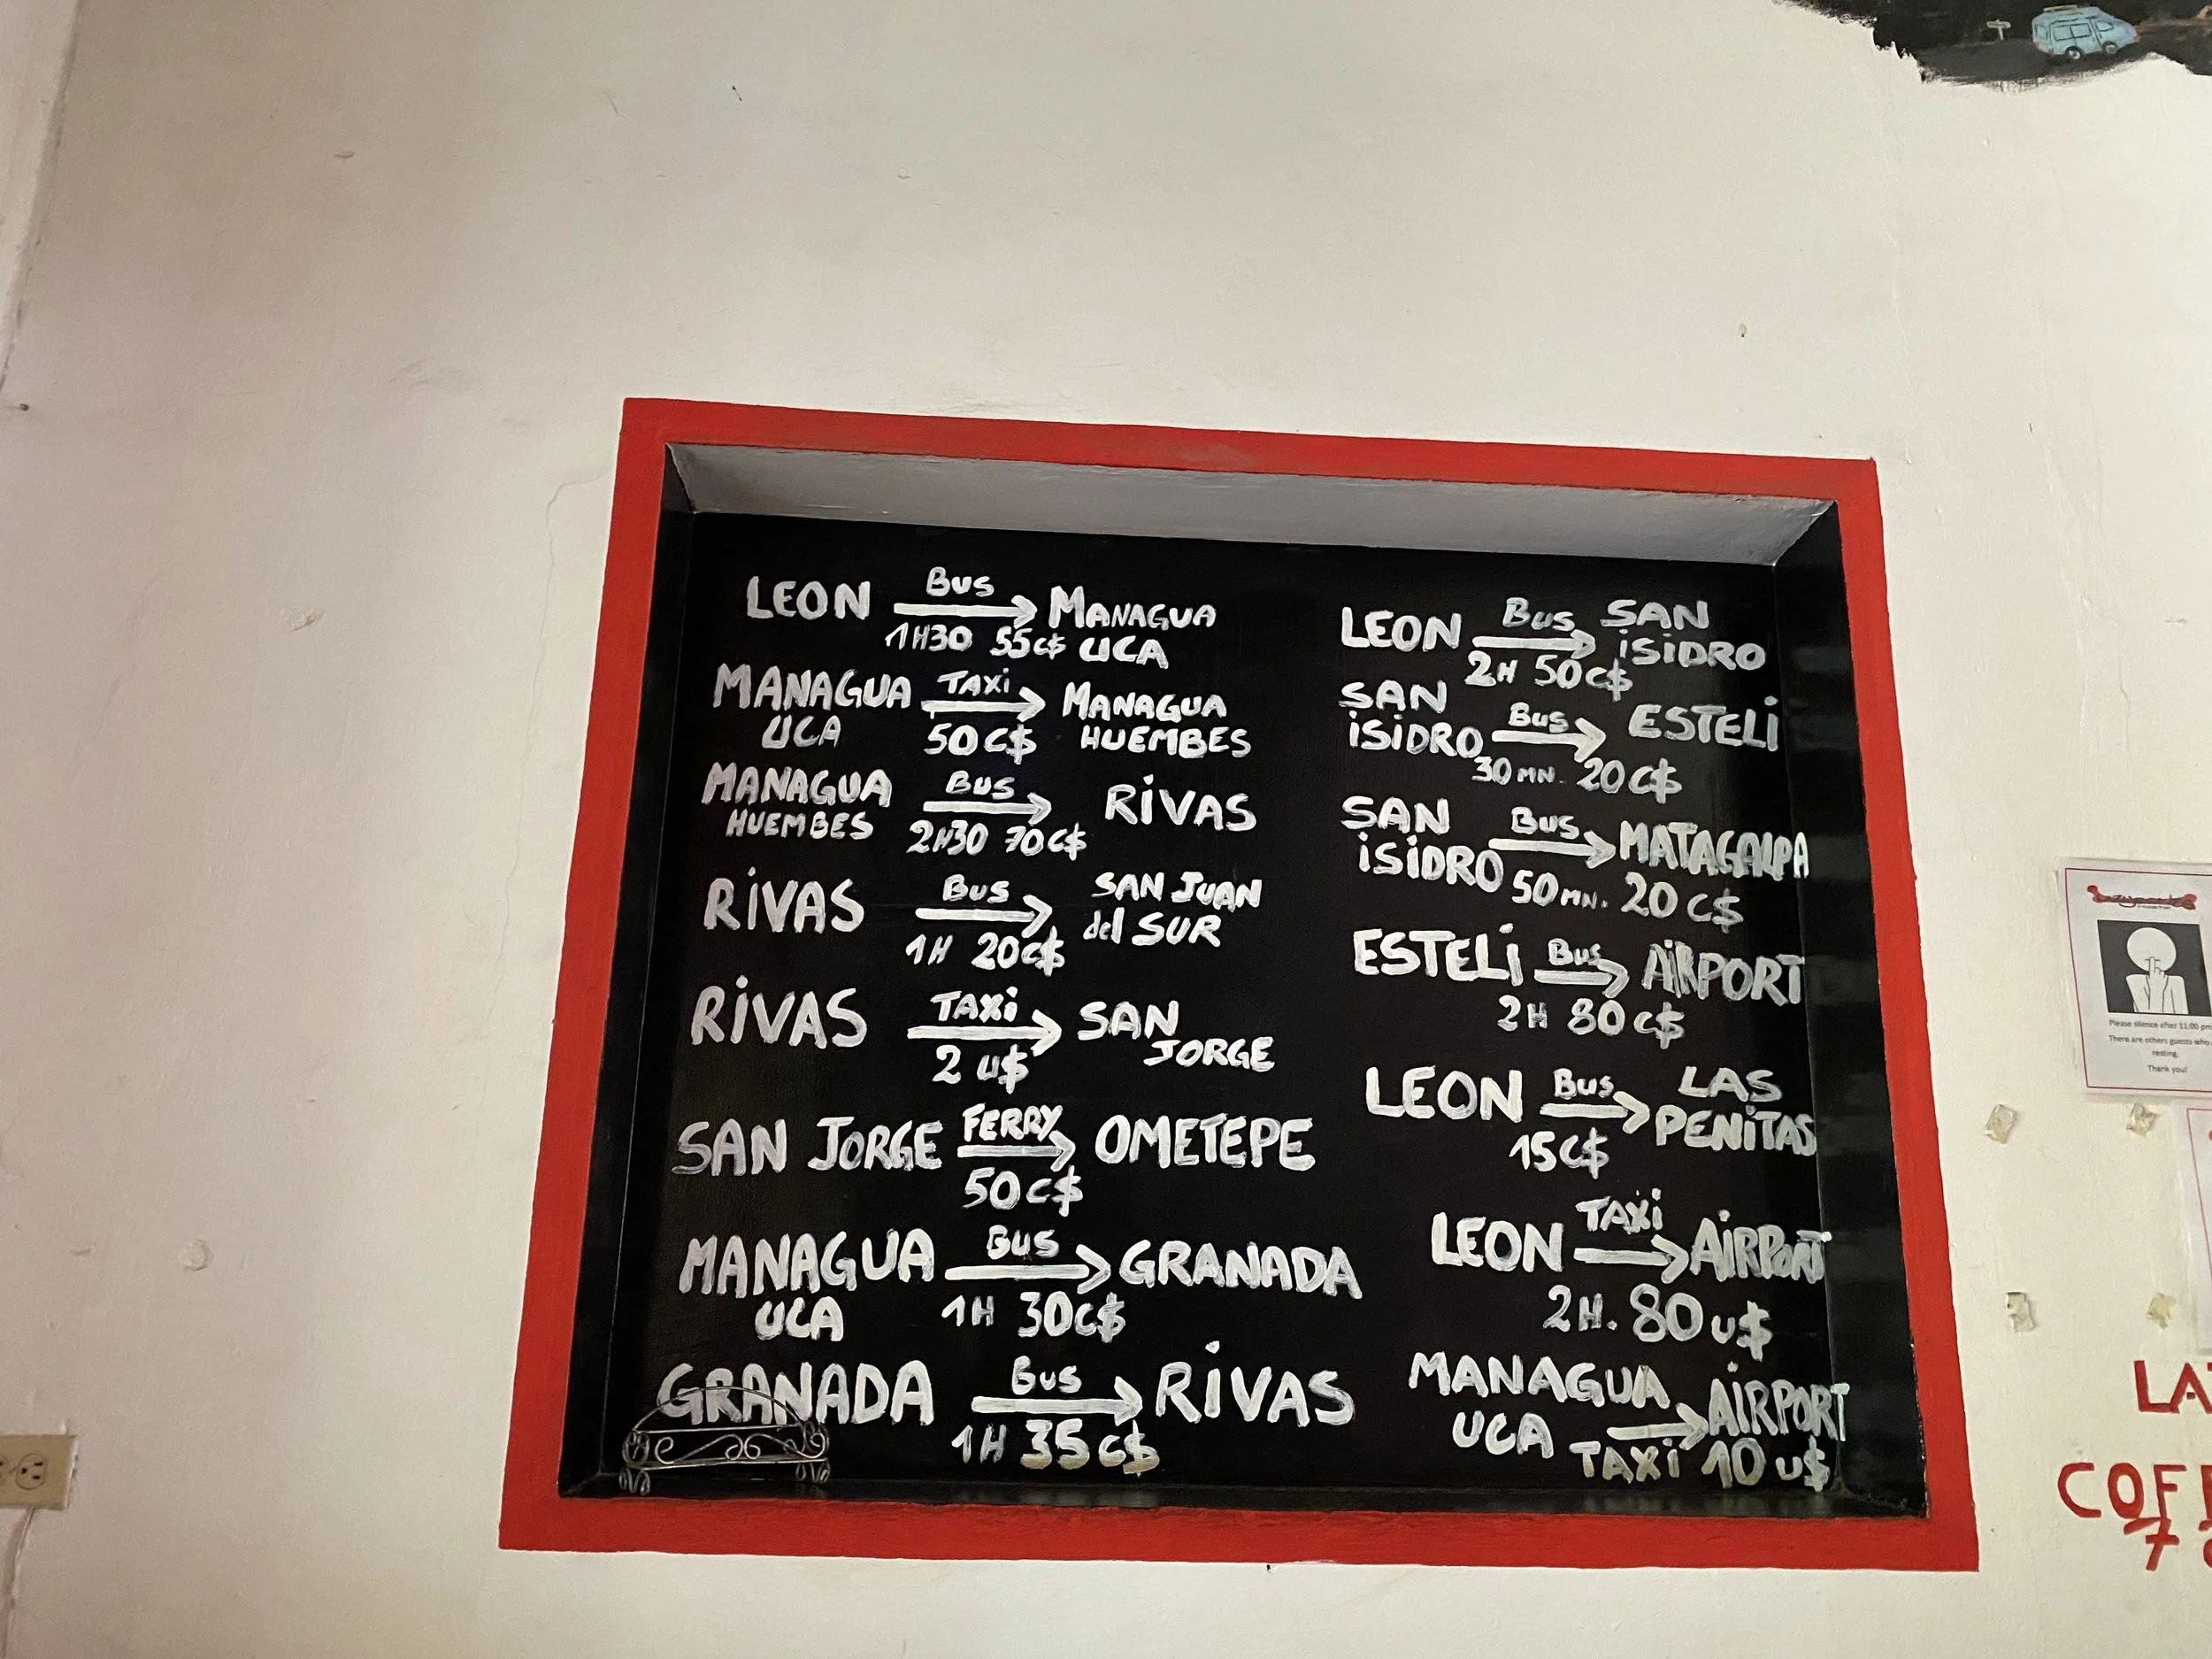 LEON Bus → MANAGUA
1H30 55C$ UCA
MANAGUA TAXi → MANAGUA
UCA 50C$ HUEMBES
MANAGUA Bus → RiVAS
HUEMBES 2H30 70C$
RiVAS Bus → SAN JUAN
1H 20C$ del SUR
RiVAS TAXi → SAN
2 u$ JORGE
SAN JORGE FERRY → OMETEPE
50C$
MANAGUA Bus → GRANADA
UCA 1H 30C$
GRANADA Bus → RiVAS
1H 35C$
LEON Bus → SAN
2H 50C$ iSiDRO
SAN Bus → ESTELi
iSiDRO 30MN. 20C$
SAN Bus → MATAGALPA
iSiDRO 50MN. 20C$
ESTELi Bus → AiRPORT
2H 80C$
LEON Bus → LAS
15C$ PENiTAS
LEON TAXi → AiRPORT
2H. 80u$
MANAGUA → AiRPORT
UCA TAXi 10u$
Please silence after 11:00 pm
There are others guests who
resting.
Thank you!
7